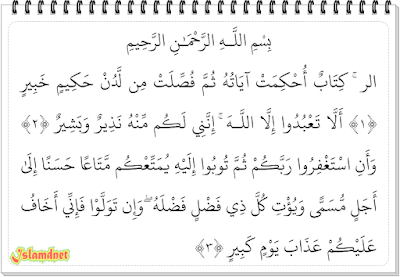 بِسْمِ اللَّـهِ الرَّحْمَـٰنِ الرَّحِيمِ
الر ۚ كِتَابٌ أُحْكِمَتْ آيَاتُهُ ثُمَّ فُصِّلَتْ مِن لَّدُنْ حَكِيمٍ خَبِيرٍ
﴿١﴾ أَلَّا تَعْبُدُوا إِلَّا اللَّـهَ ۚ إِنَّنِي لَكُم مِّنْهُ نَذِيرٌ وَبَشِيرٌ ﴿٢﴾
وَأَنِ اسْتَغْفِرُوا رَبَّكُمْ ثُمَّ تُوبُوا إِلَيْهِ يُمَتِّعْكُم مَّتَاعًا حَسَنًا إِلَىٰ
أَجَلٍ مُّسَمًّى وَيُؤْتِ كُلَّ ذِي فَضْلٍ فَضْلَهُ ۖ وَإِن تَوَلَّوْا فَإِنِّي أَخَافُ
عَلَيْكُمْ عَذَابَ يَوْمٍ كَبِيرٍ ﴿٣﴾
Islamdnet